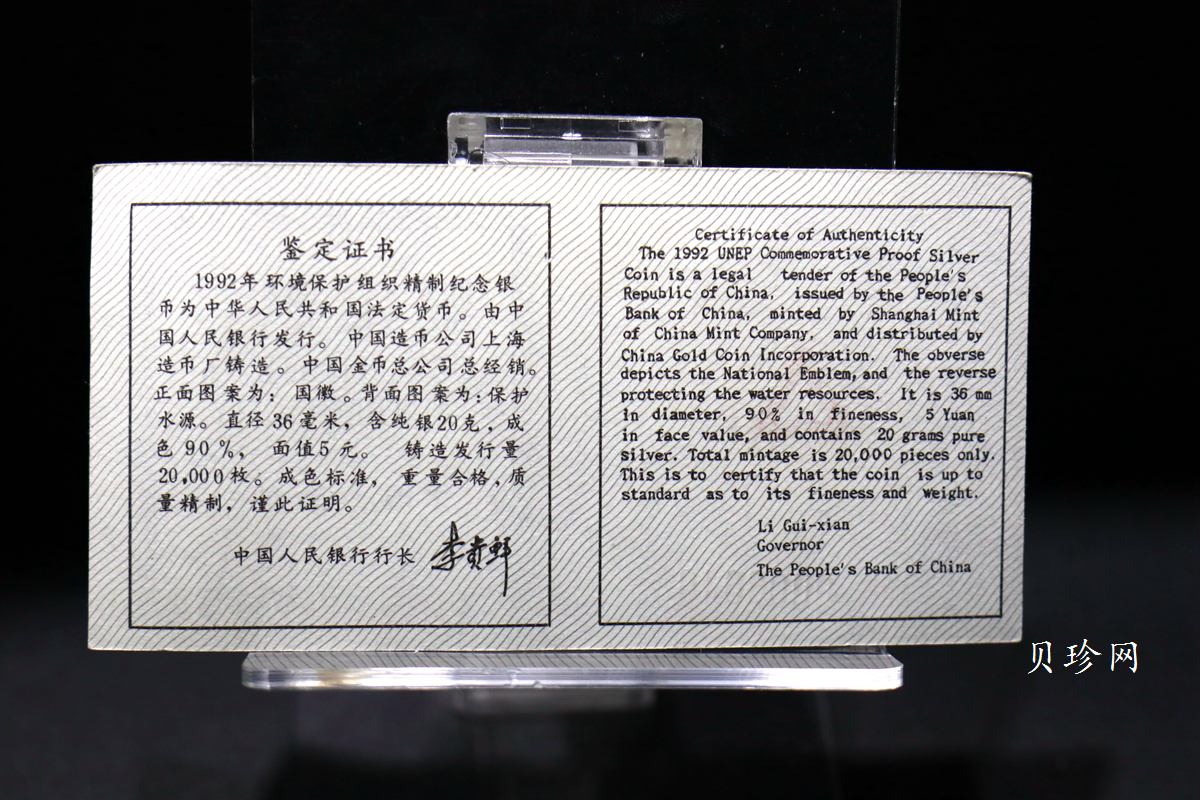 鉴定证书
1992年环境保护组织精制纪念银
币为中华人民共和国法定货币。由中
国人民银行发行。中国造币公司上海
造币厂铸造。中国金币总公司总经销。
正面图案为：国徽。背面图案为:保护
水源。直径36毫米，含纯银20克，成
色90%， 面值5元。 铸造发行量
20,000枚。成色标准， 重量合格,质
量精制，谨此证明。
中国人民银行行长 李贵鲜
Certificate of Authenticity
The 1992 UNEP Commemorative Proof Silver
Coin is a legal tender of the People's
Republic of China, issued by the People's
Bank of China, minted by Shanghai Mint
of China Mint Company, and distributed by
China Gold Coin Incorporation. The obverse
depicts the National Emblem, and the reverse
protecting the water resources. It is 36 mm
in diameter, 90% in fineness, 5 Yuan
in face value, and contains 20 grams pure
silver. Total mintage is 20,000 pieces only.
This is to certify that the coin is up to
standard as to its fineness and weight.
Li Gui-xian
Governor
The People's Bank of China
贝珍网